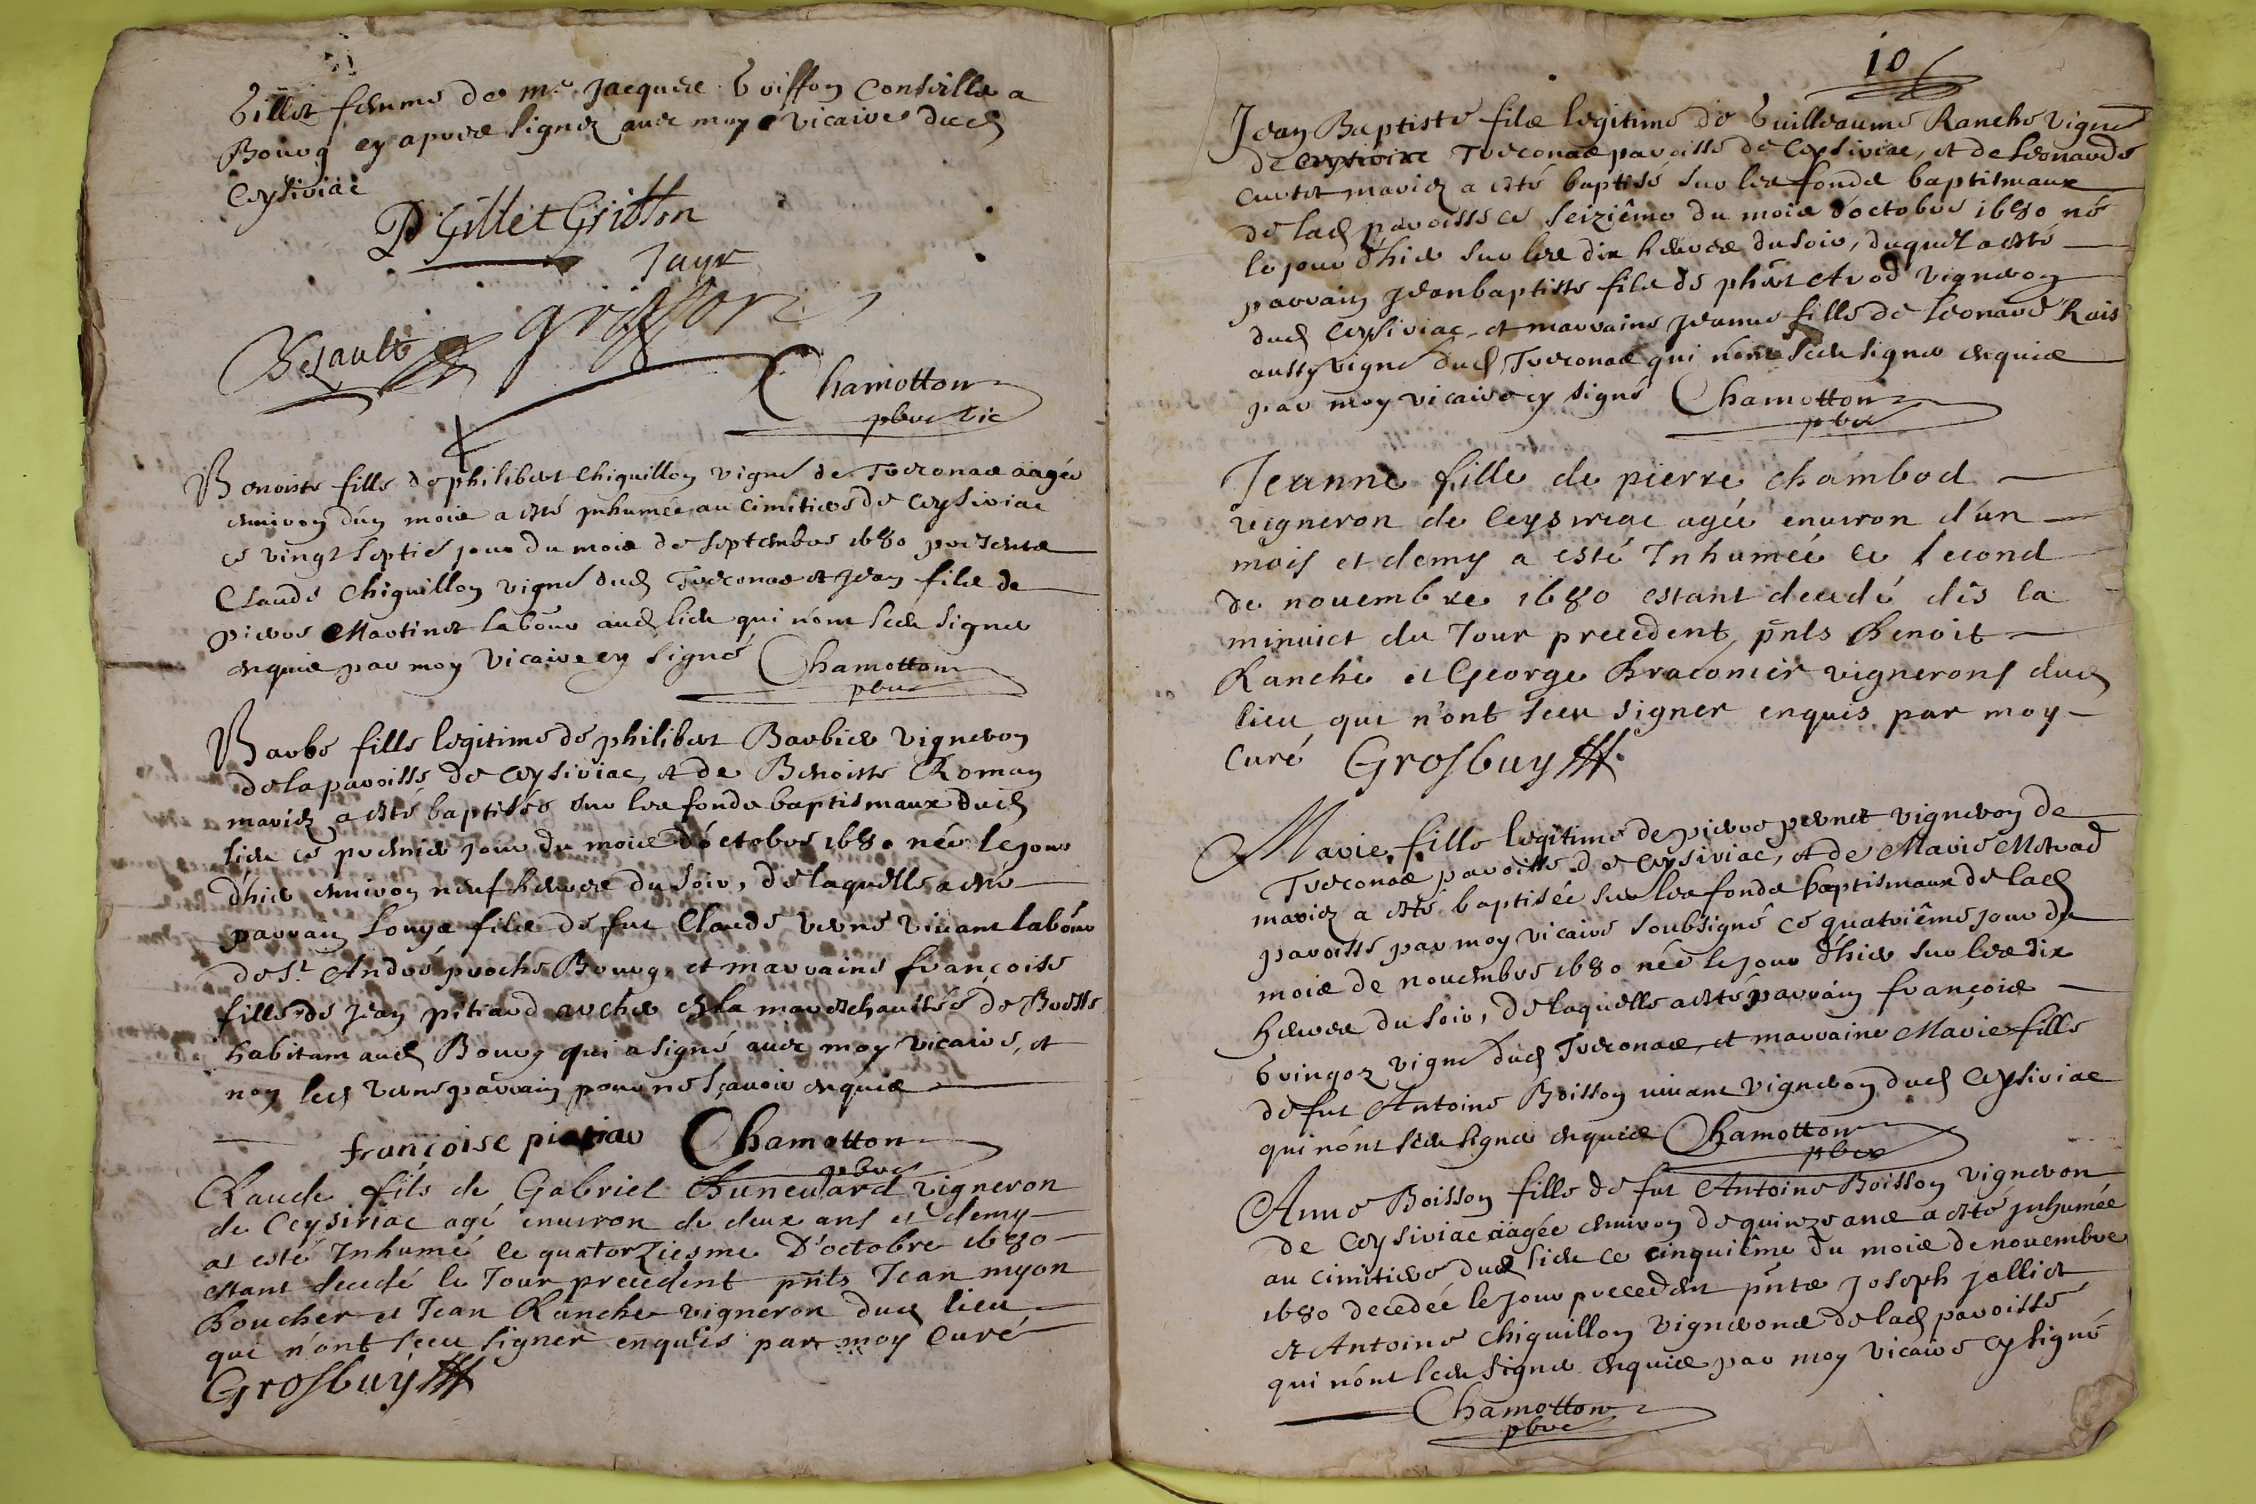 Gillet femme de Mr Jacques Griffon Conseiller a
Bourg cy apres signez avec moy vicaire dud
Ceysiriac
P Gillet Griffon
Jayr
griffon
Chamotton
pbre vic
Benoiste fille de philibert Chiquillon vigne de Tresconas aagée
environ dun mois a esté inhumée au cimitiere de Ceysiriac
ce vingt septie jour du mois de septembre 1680 presents
Claude Chiquillon vigne dud Tresconas et Jean fils de
pierre Martinet labour aud lieu qui nont sceu signer
enquis par moy vicaire cy signé Chamotton
pbre
Barbe fille legitime de philibert Barbier vigneron
de la paroisse de Ceysiriac, et de Benoiste Roman
mariez a esté baptisée sur les fonds baptismaux dud
lieu ce premier jour du mois d'octobre 1680 née le jour
d'hier environ neuf heures du soir, de laquelle a esté
parrain Louys fils de fut Claude verne vivant labour
de St André proche Bourg, et marraine françoise
fille de Jean pitiard archer en la mareschaussée de Bresse
habitant aud Bourg qui a signé avec moy vicaire, et
non led verne parrain pour ne sçavoir enquis
françoise Chamotton
pbre
Claude fils de Gabriel vigneron
de Ceysiriac agé environ de deux ans et demy
at esté Inhumé le quatorziesme D'octobre 1680
estant decedé le Jour precedent pnts Jean myon
Boucher et Jean Ranche vigneron dud lieu
qui n'ont sceu signer enquis par moy Curé
Grosbuy
10
Jean Baptiste fils legitime de Guilleaume Ranche vigne
de Tresconas paroisse de Ceysiriac, et de Leonarde
Curtet mariez a esté baptisé sur les fonds baptismaux
de lad paroisse ce seiziême du mois d'octobre 1680 né
le jour d'hier sur les dix heures du soir, duquel a esté
parrain Jean baptiste fils de phert vigneron
dud Ceysiriac et marraine Jeanne fille de Leonard Rais
aussy vigne dud Tresconas qui n'ont sceu signer enquis
par moy vicaire cy signé Chamotton
pbre
Jeanne fille de pierre chambod
vigneron de Ceysiriac agée environ d'un
mois et demy a esté Inhumée le second
de novembre 1680 estant decedé dis la
minuict du Jour precedent, pnts Benoit
Ranche et George Braconier vignerons dud
lieu qui n'ont sceu signer enquis par moy
Curé Grosbuy
Marie fille legitime de pierre pernet vigneron de
Tresconas paroisse de Ceysiriac, et de Marie
mariez a esté baptisée sur les fonds baptismaux de lad
paroisse par moy vicaire soubsigné ce quatriême jour du
mois de novembre 1680 née le jour d'hier sur les dix
heures du soir, de laquelle a esté parrain françois
Gringoz vigne dud Tresconas, et marraine Marie fille
de fut Antoine Boisson vivant vigneron dud Ceysiriac
qui n'ont sceu signer enquis Chamotton
pbre
Anne Boisson fille de fut Antoine Boisson vigneron
de Ceysiriac aagée environ de quinze ans a esté inhumée
au cimitiere dud lieu ce cinquiême du mois de novembre
1680 decedée le jour precedent pnts Joseph jolliet
et Antoine Chiquillon vignerons de lad paroisse
qui n'ont sceu signer enquis par moy vicaire cy signé
Chamotton
pbre